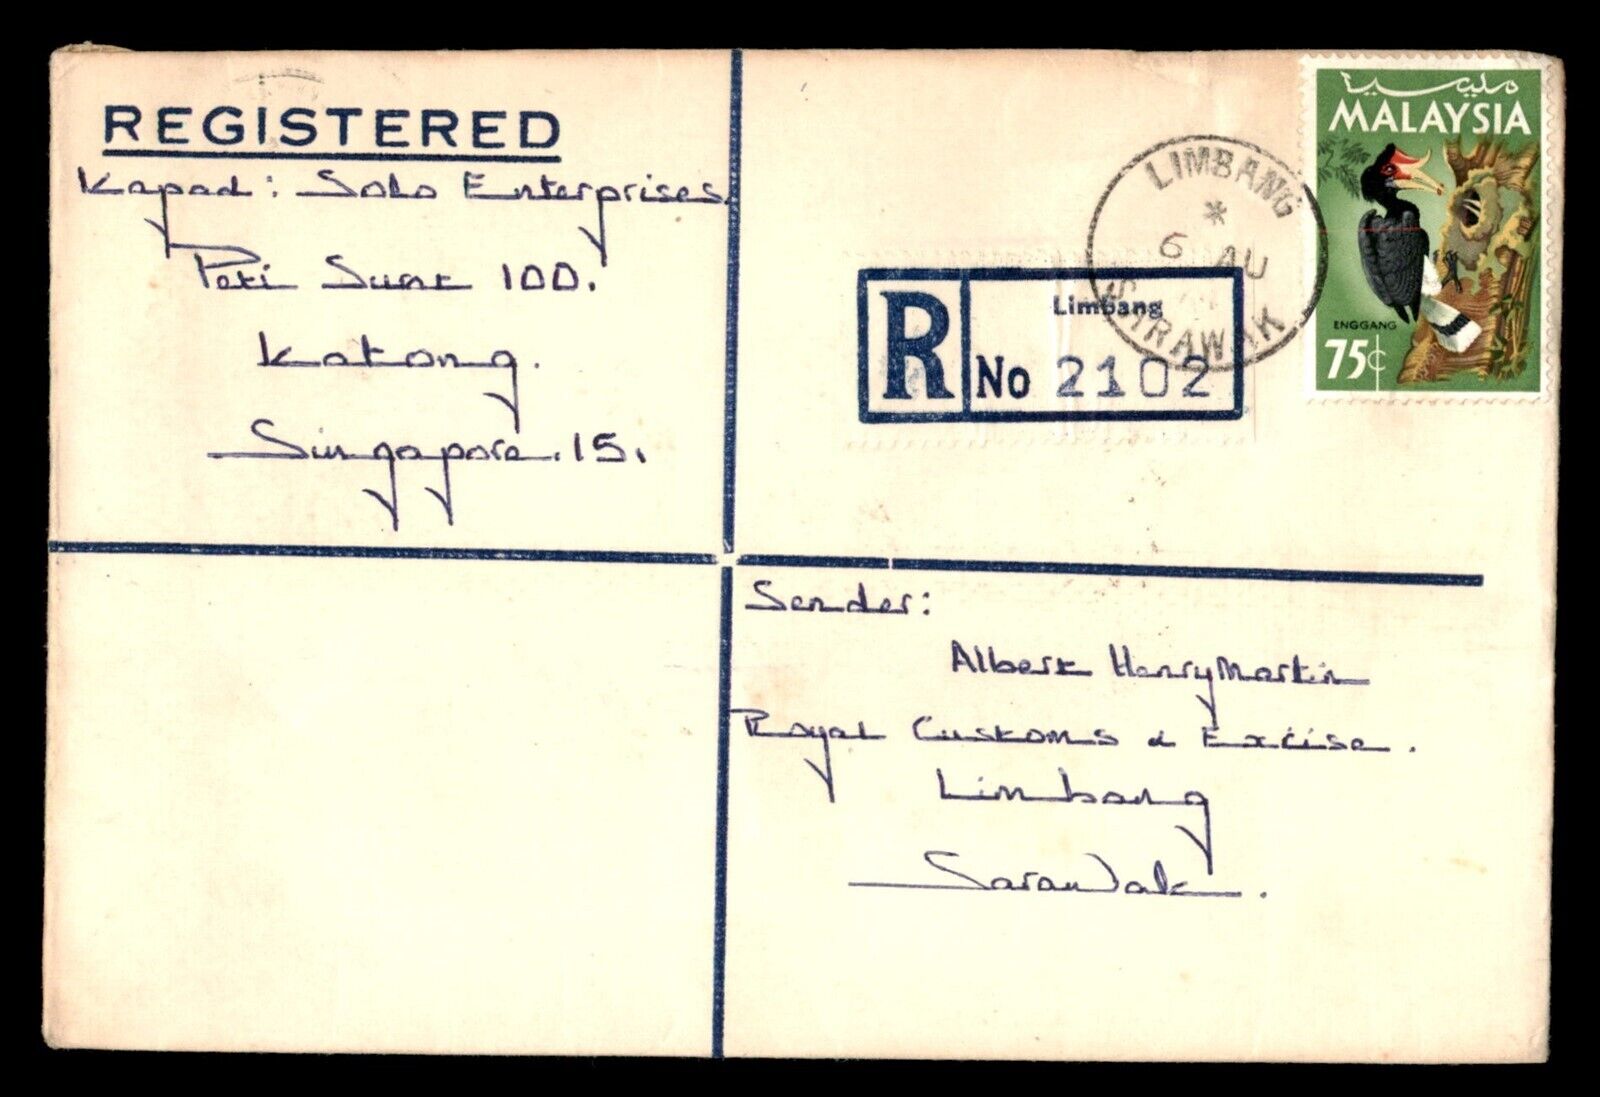 REGISTERED
Kapad: Solo Enterprises
Peti Surat 100.
Katong.
Singapore.15.
R
Limbang
No 2102
LIMBANG
*
6 AU
SARAWAK
مليسيا
MALAYSIA
ENGGANG
75¢
Sender:
Albert Henry Martin
Royal Customs & Excise.
Limbang
Sarawak.